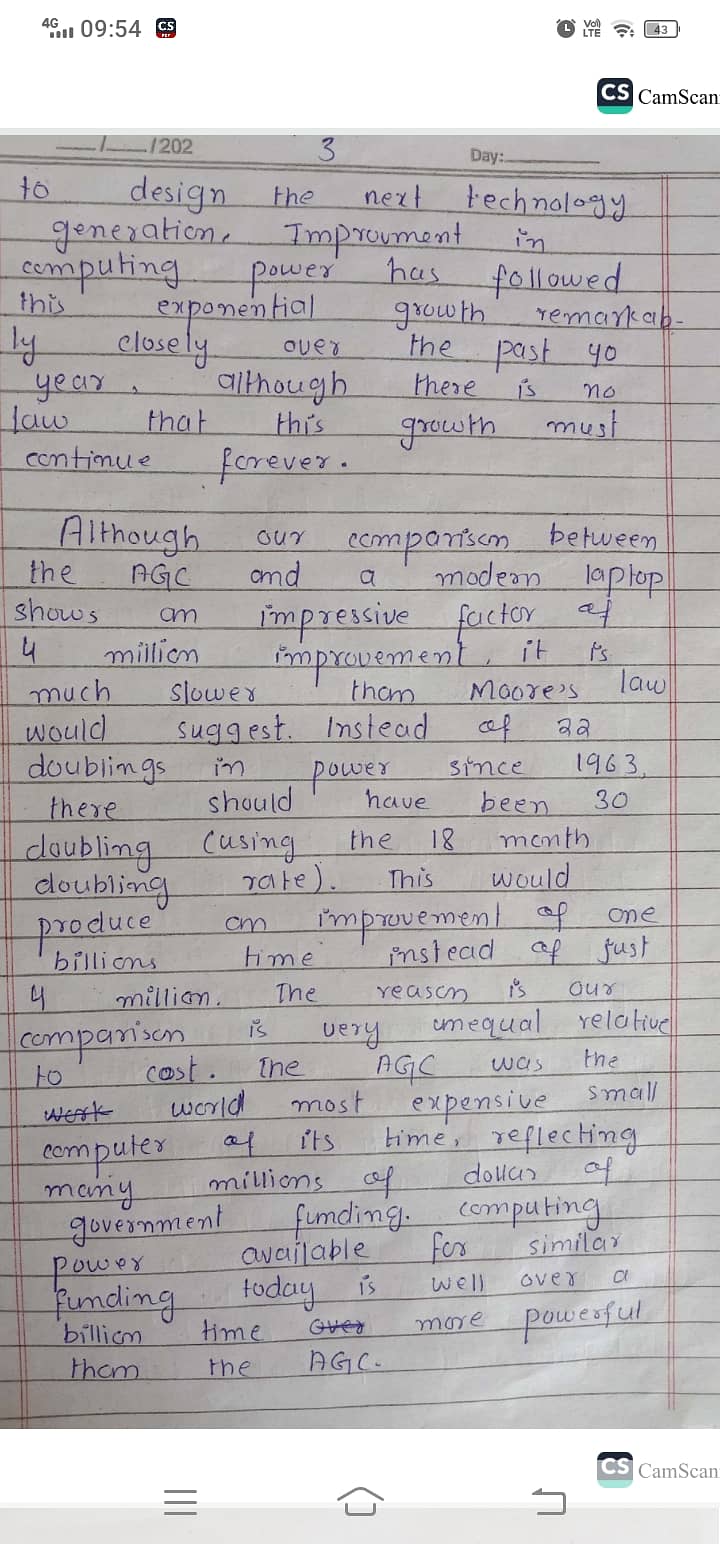 4G 09:54 CS PDF Vo) LTE 43
CS CamScan
/ /202 3 Day:
to design the next technology
generation. Improvment in
computing power has followed
this exponential growth remarkab-
ly closely over the past 40
year, although there is no
law that this growth must
continue forever.
Although our comparison between
the AGC and a modern laptop
shows an impressive factor of
4 million improvement, it is
much slower than Moore's law
would suggest. Instead of 22
doublings in power since 1963,
there should have been 30
doubling (using the 18 month
doubling rate). This would
produce an improvement of one
billions time instead of just
4 million. The reason is our
comparison is very unequal relative
to cost. The AGC was the
work world most expensive small
computer of its time, reflecting
many millions of dollar of
government funding. computing
power available for similar
funding today is well over a
billion time over more powerful
than the AGC.
CS CamScan